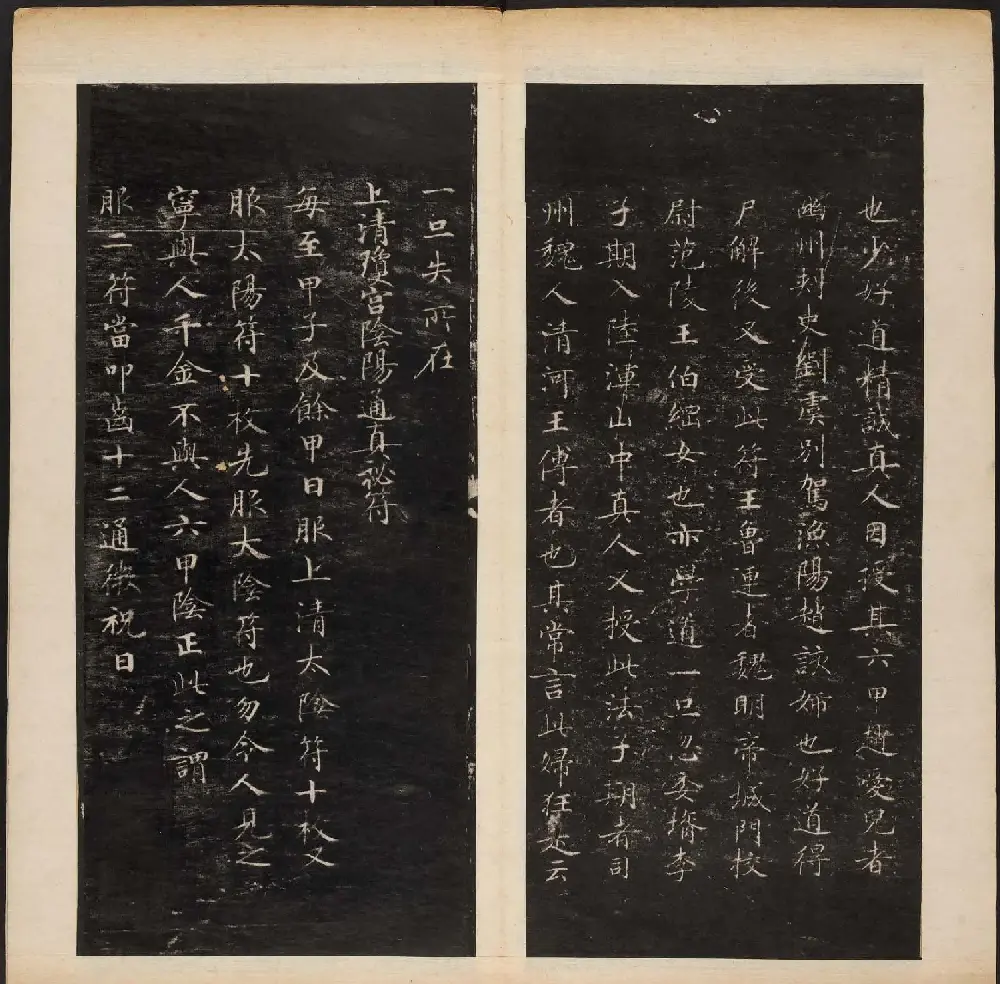 也少好道精誠真人因授其六甲趙愛兒者
幽州刾史劉虞別駕漁陽趙該婦也好道得
尸解後又受此符王魯連者魏明帝城門校
尉范陵王伯綱女也亦學道一旦忽委壻李
子期入陸渾山中真人又授此法子期者司
州魏人清河王傅者也其常言此婦狂走云
一旦失所在
上清瓊宮陰陽通真祕符
每至甲子及餘甲日服上清太陰符十枚又
服太陽符十枚先服太陰符也勿令人見之
寧與人千金不與人六甲陰正此之謂
服二符當叩齒十二通微祝曰